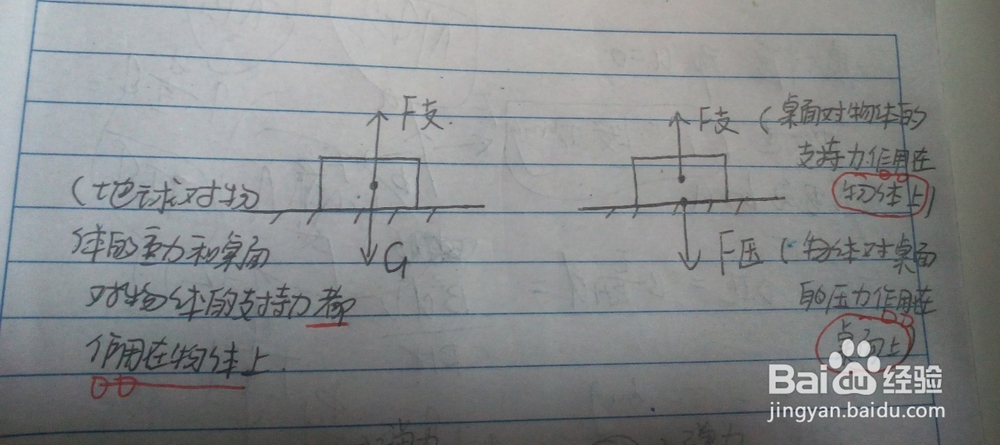 F支.
(地球对物
体的重力和桌面
对物体的支持力都
作用在物体上.
G
F支 (桌面对物体的
支持力作用在
物体上)
F压 (物体对桌面
的压力作用在
桌面上)
Baidu经验
jingyan.baidu.com